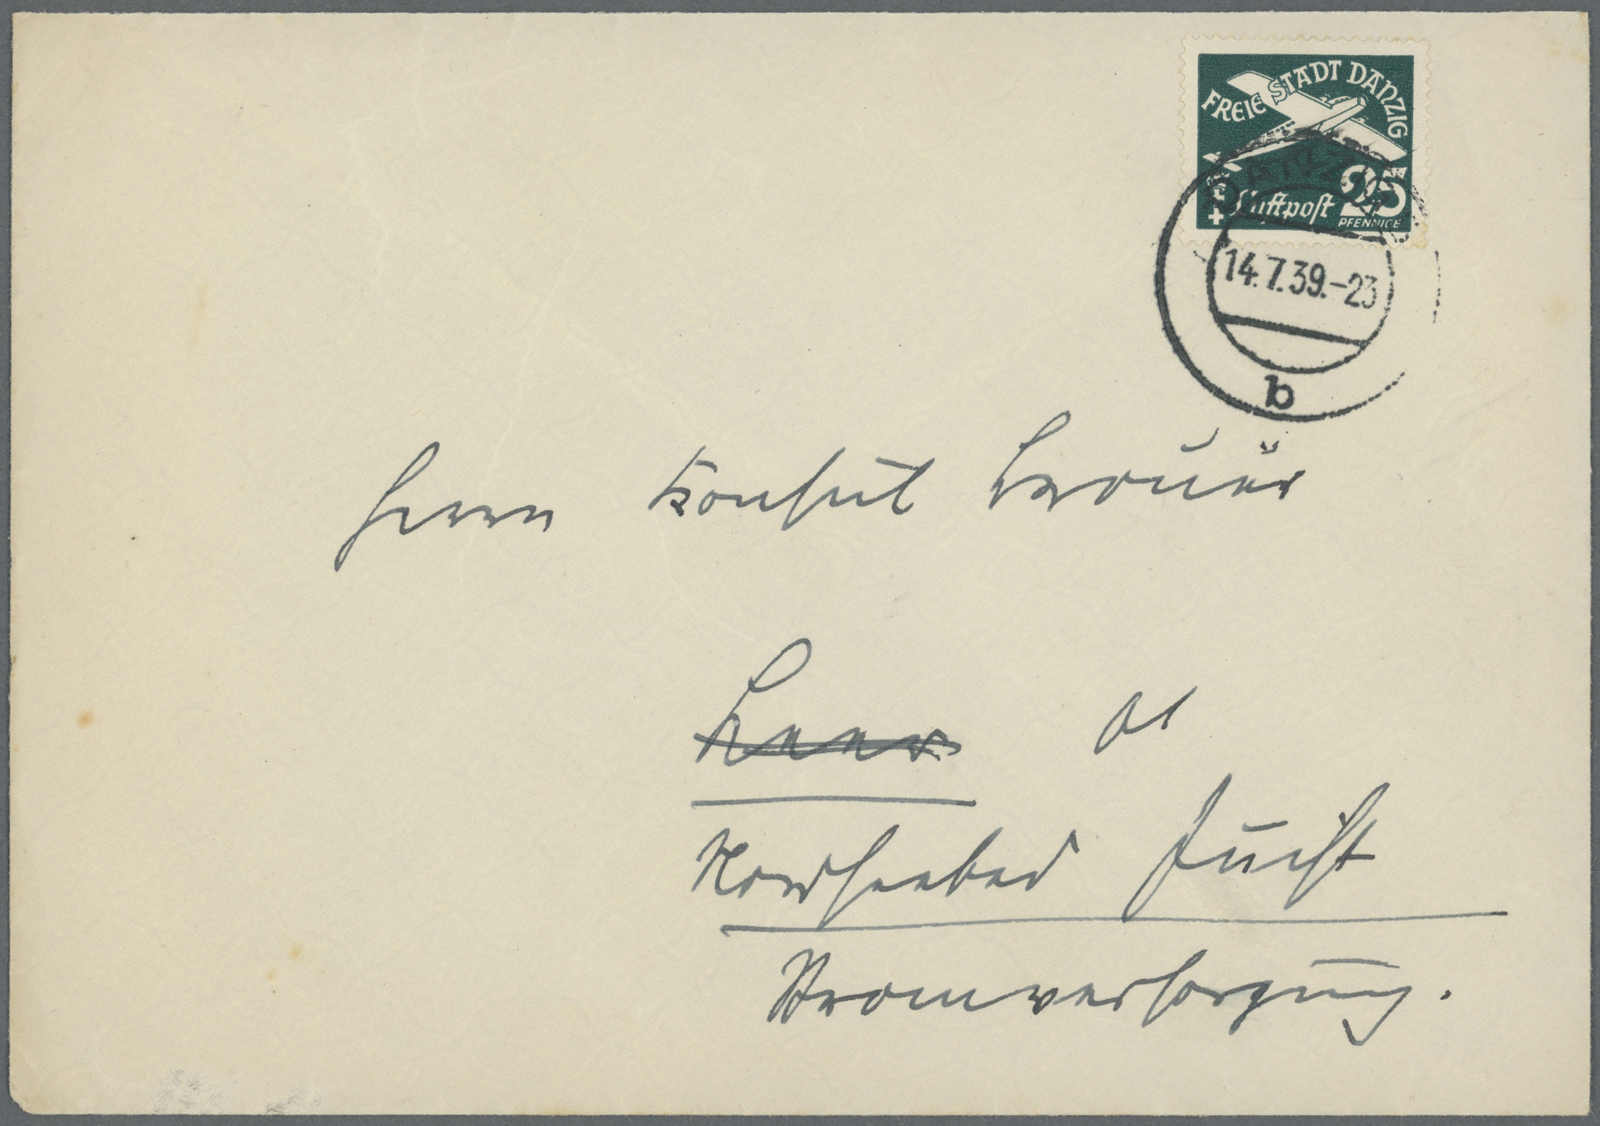 FREIE STADT DANZIG
Luftpost 25
PFENNIGE
DANZIG
14.7.39.-23
b
Herrn Konsul Brouër
Leer
Nordseebad Juist
Stromversorgung.